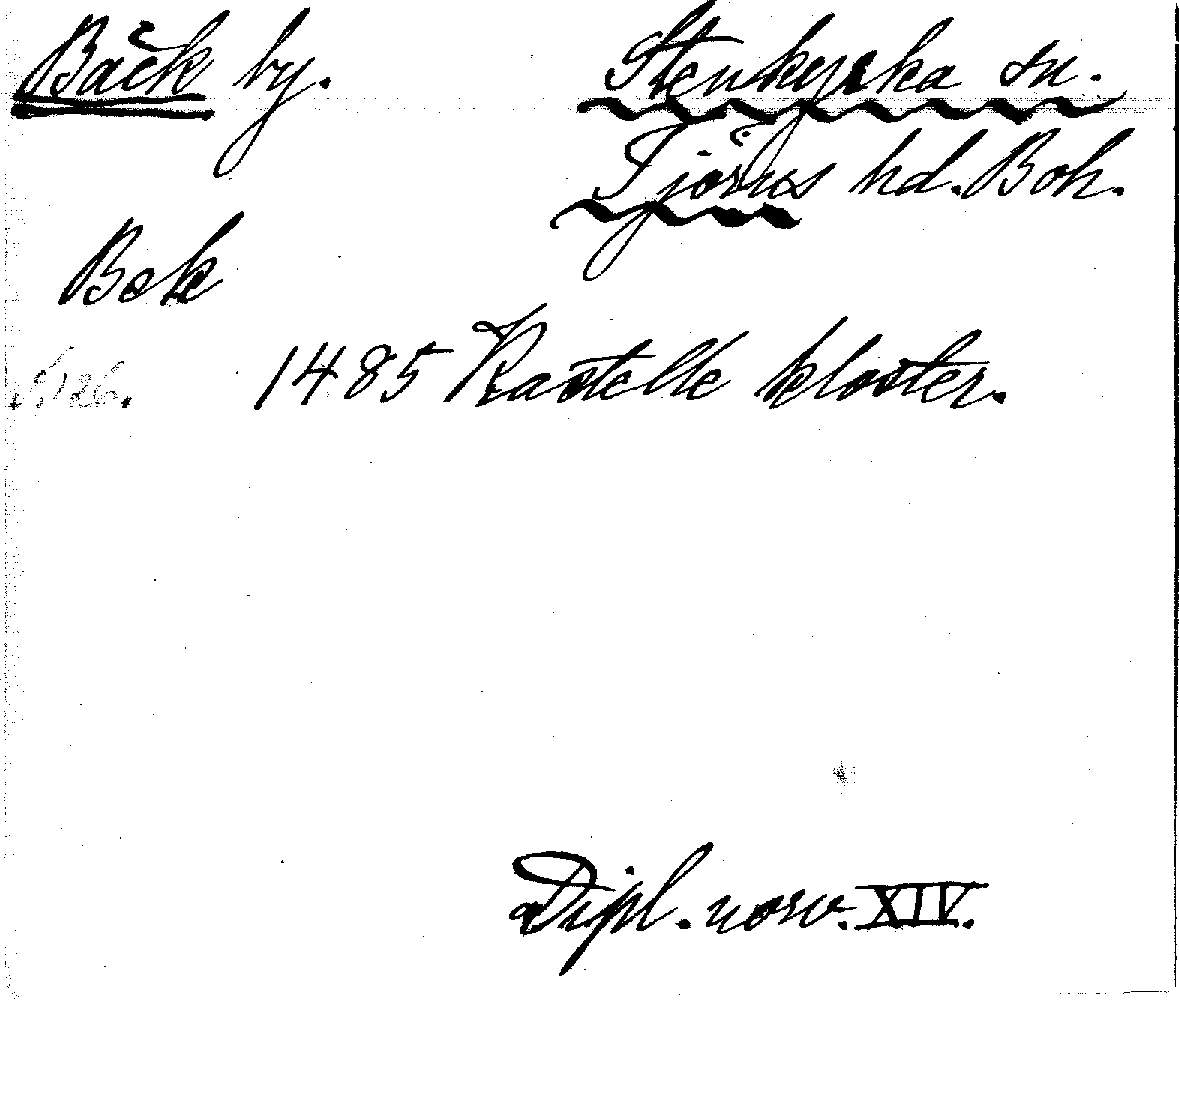 Bäck by. Stenkyrka sn.
Tjörns hd. Boh.
Bek
s. 126. 1485 Kastelle kloster.
Dipl. norv. XIV.